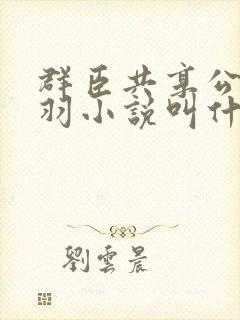 群臣共享公
羽小說叫什
劉雲晨